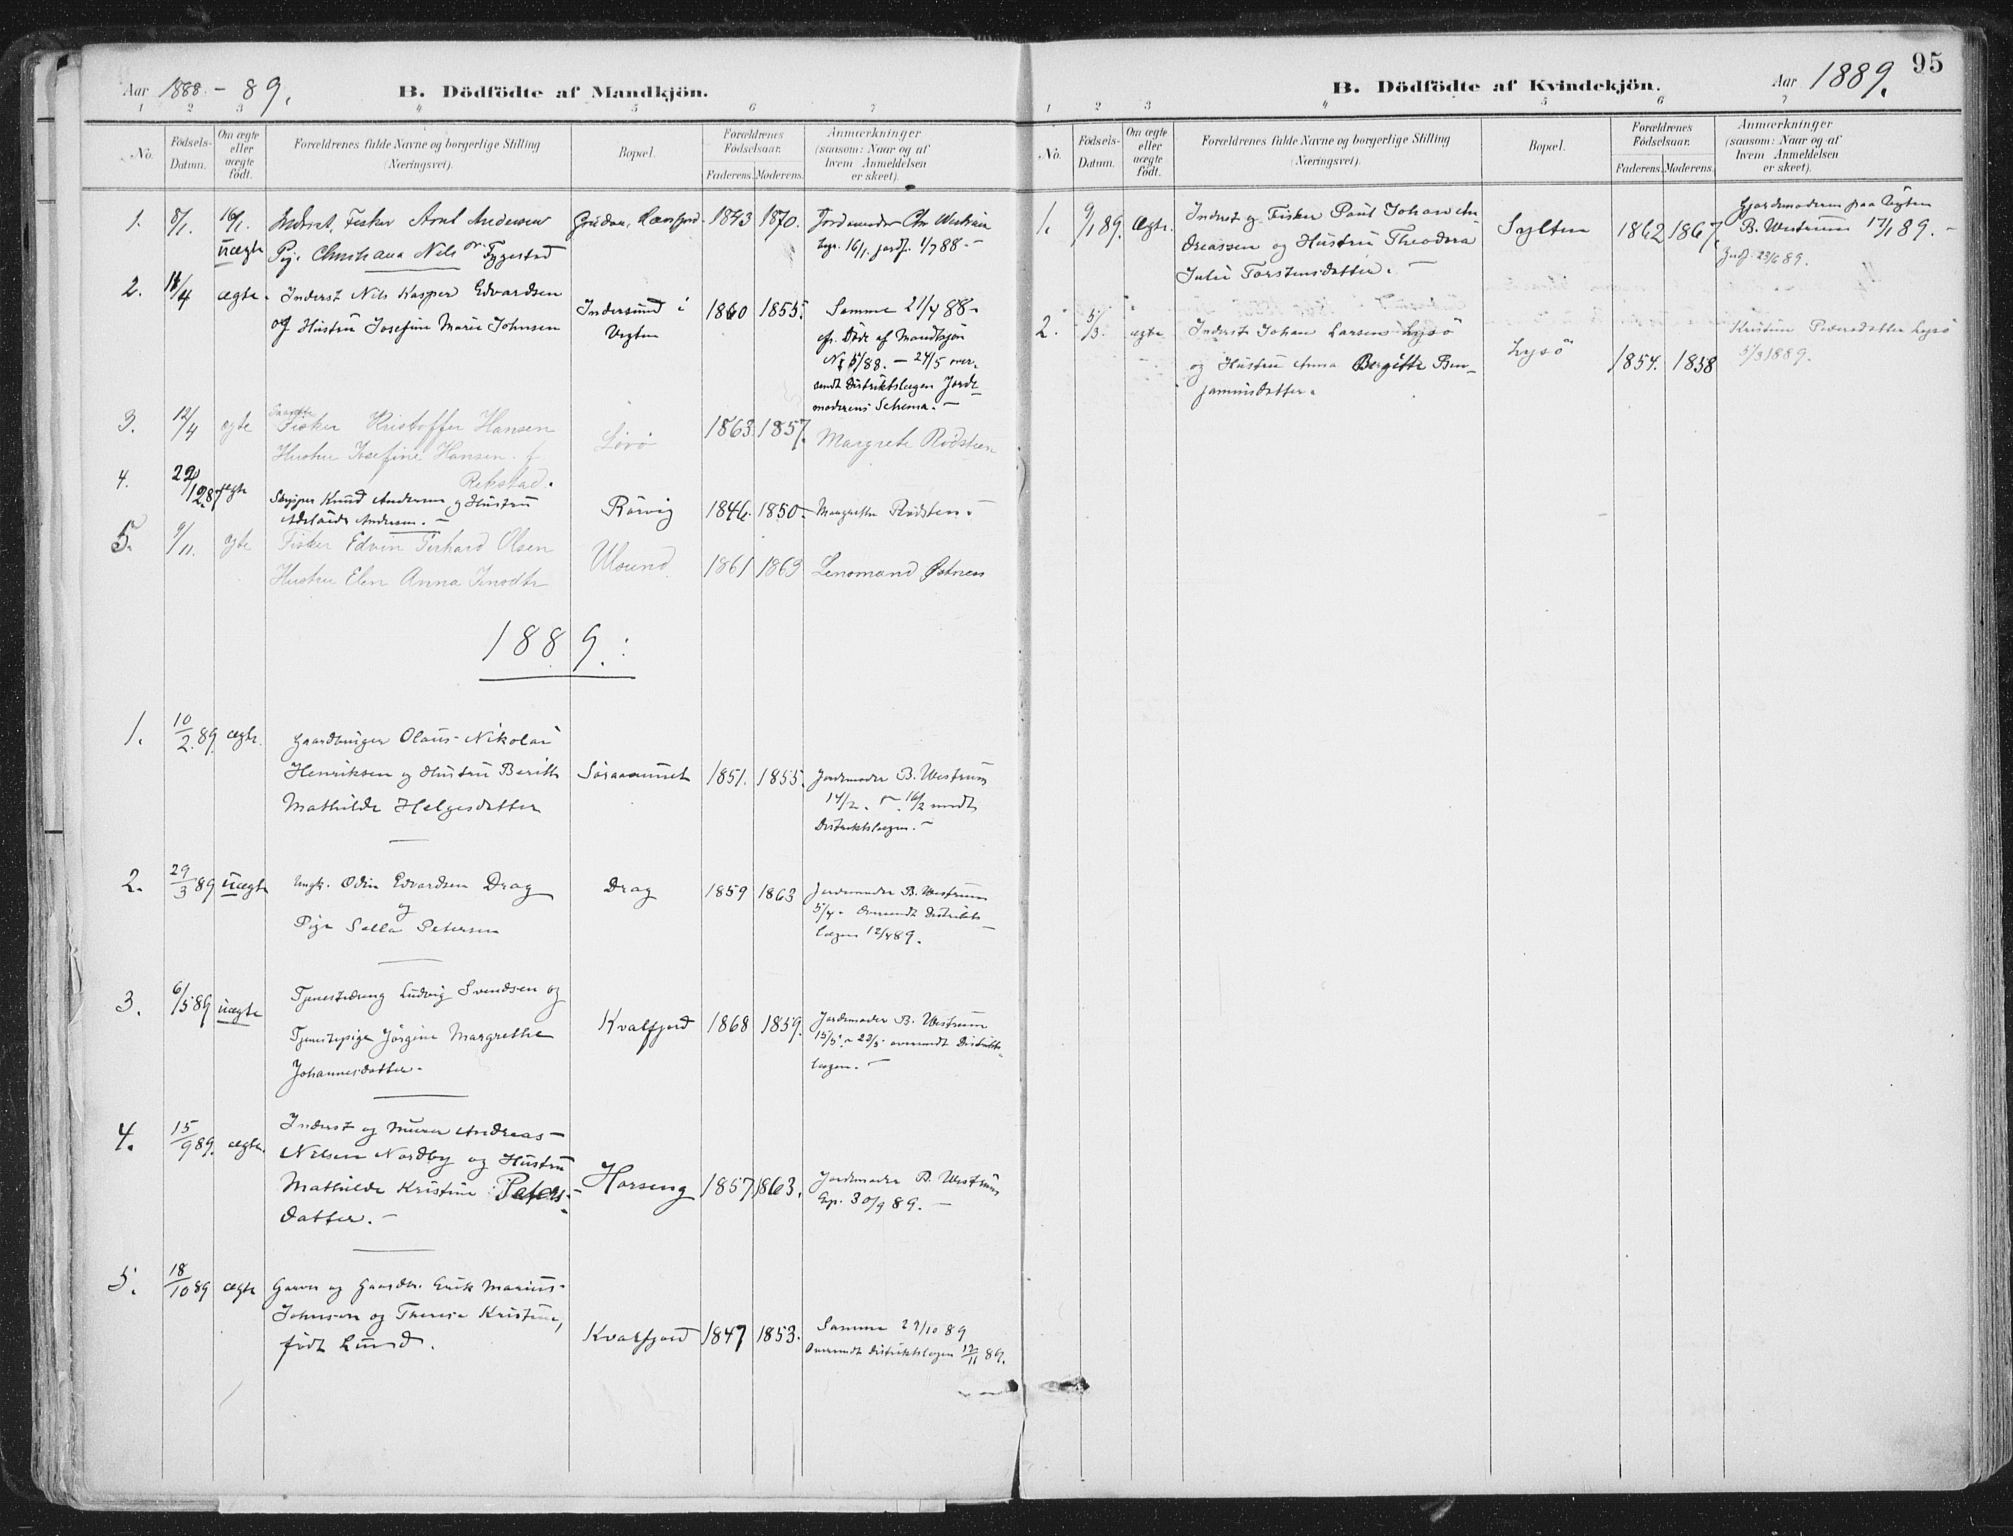 Aar 1888 - 89.
B. Dödfödte af Mandkjön.
1 2 3 4 5 6 7
No.
Födsels-Datum.
Om ægte eller uægte födt.
Forældrenes fulde Navne og borgerlige Stilling (Næringsvei).
Bopæl.
Forældrenes Födselsaar.
Faderens.
Moderens.
Anmærkninger (saasom: Naar og af hvem Anmeldelsen er skeet).
1. 8/1. 16/1. uægte
Inderst, Fisker Arnt Andersen
Pige Christiana Nels
1843 1870.
16/1. 88. -
2. 18/4 ægte.
Inderst Nils Kasper Edvardsen
og Hustru Josefine Marie Johnsen
Indersund i
Vegten
1860 1855.
Samme 21/4 88 -
Döde af Mandkjön
5/88. - 24/5 over-
sendt Distriktslægen Jorde-
moderens Schema. -
3. 12/4 ægte
Fisker Kristoffer Hansen
Hustru Josefine Hansen f.
Rekstad.
1863 1857.
Margrete Rödsteen
4. 22/12 ægte
Skipper Knud Andersen og Hustru
Andersen. -
Rörvig
1846. 1850.
Margrethe Rödsten.
5. 9/11. ægte
Fisker Edvin Gerhard Olsen
Hustru Elen Anna
Ulsund
1861 1863
Lensmand
1889.:
1. 10/2. 89. ægte.
Gaardbruger Olaus Nikolai
Henriksen og Hustru Berith
Mathilde Helgesdatter
1851. 1855.
Jordemoder B. Westrum
14/2. - 16/2 sendt
Distriktslægen. -
2. 29/3 89 uægte
Ungk. Odin Edvardsen Drag
og
Pige Petersen
Drag
1859 1863
Jordemoder B. Westrum
5/4. Oversendt Distrikts-
lægen 12/4 89.
3. 6/5 89 uægte
Tjenestedreng Ludvig Svendsen og
Tjenestepige Jörgine Margrethe
Johannesdatter.
Kvalfjord
1868 1859.
Jordemoder B. Westrum
15/5. - 22/5 oversendt Distrikts-
lægen. -
4. 15/9 89. ægte.
Inderst og Murer Andreas
Nilsen Nordby og Hustru
Mathilde Kristine Peters-
datter. -
Horseng
1857 1863.
Jordemoder B. Westrum
30/9 89. -
5. 18/10 89 ægte
Garver og Gaardbr. Erik Marius
Johnsen og Theresie Kristine,
födt Lund.
Kvalfjord
1847 1853.
Samme 29/10 89
Oversendt Distriktslægen 12/11 89.
95
Aar 1889.
B. Dödfödte af Kvindekjön.
1 2 3 4 5 6 7
No.
Födsels-Datum.
Om ægte eller uægte födt.
Forældrenes fulde Navne og borgerlige Stilling (Næringsvei).
Bopæl.
Forældrenes Födselsaar.
Faderens.
Moderens.
Anmærkninger (saasom: Naar og af hvem Anmeldelsen er skeet).
1. 9/1 89. Ægte.
Inderst og Fisker Paul Johan An-
dreassen og Hustru Theodora
Julie Torstensdatter. -
Sylten
1862 1867
Gjordemoderen paa Vegten
B. Westrum 17/1 89. -
23/6 89.
2. 5/3. ægte
Inderst Johan Larsen Lysö
og Hustru Anna Bergitte Ben-
jaminsdatter.
Lysö
1854. 1858
Kristine Pedersdatter Lysö
5/3 1889.